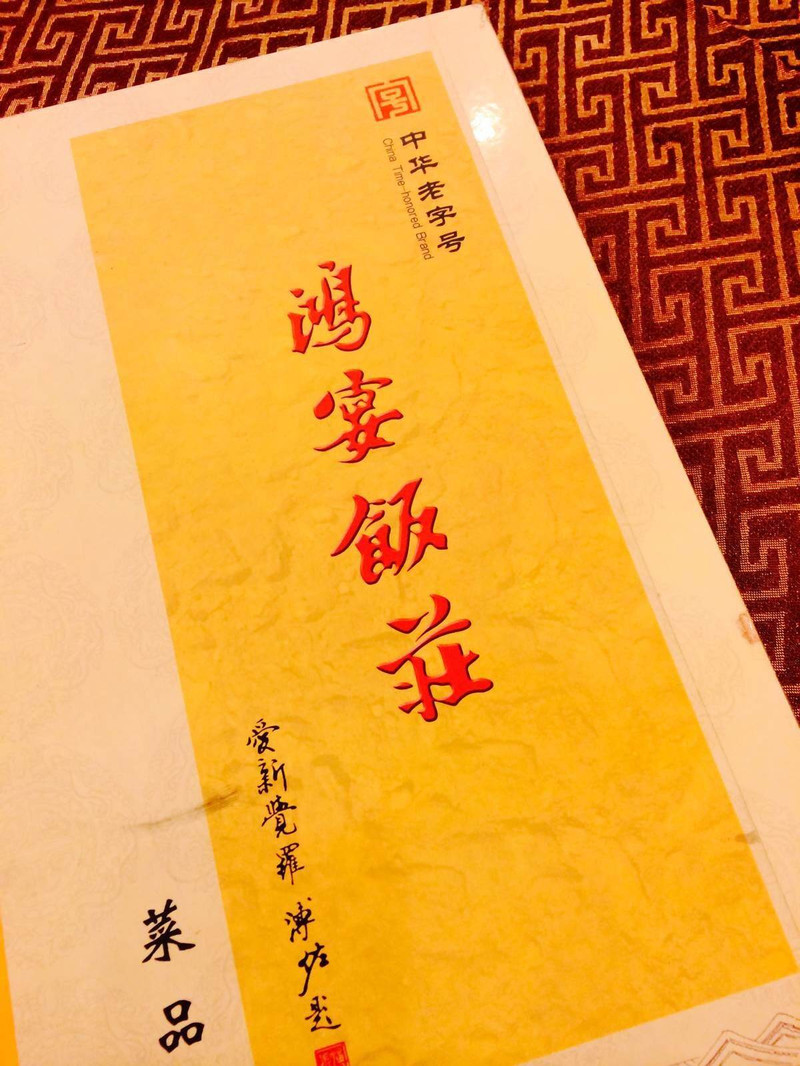 中华老字号
China Time-honored Brand
鴻宴飯莊
愛新覺羅 溥佐題
菜品